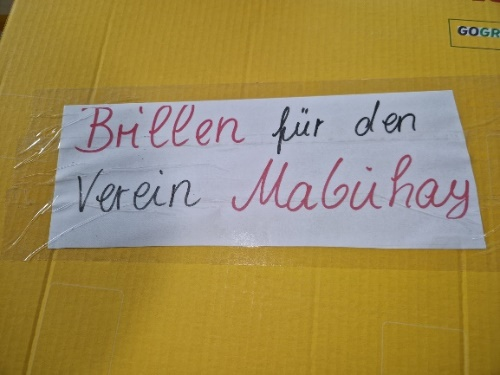 GOGR
Brillen für den
Verein Mabuhay